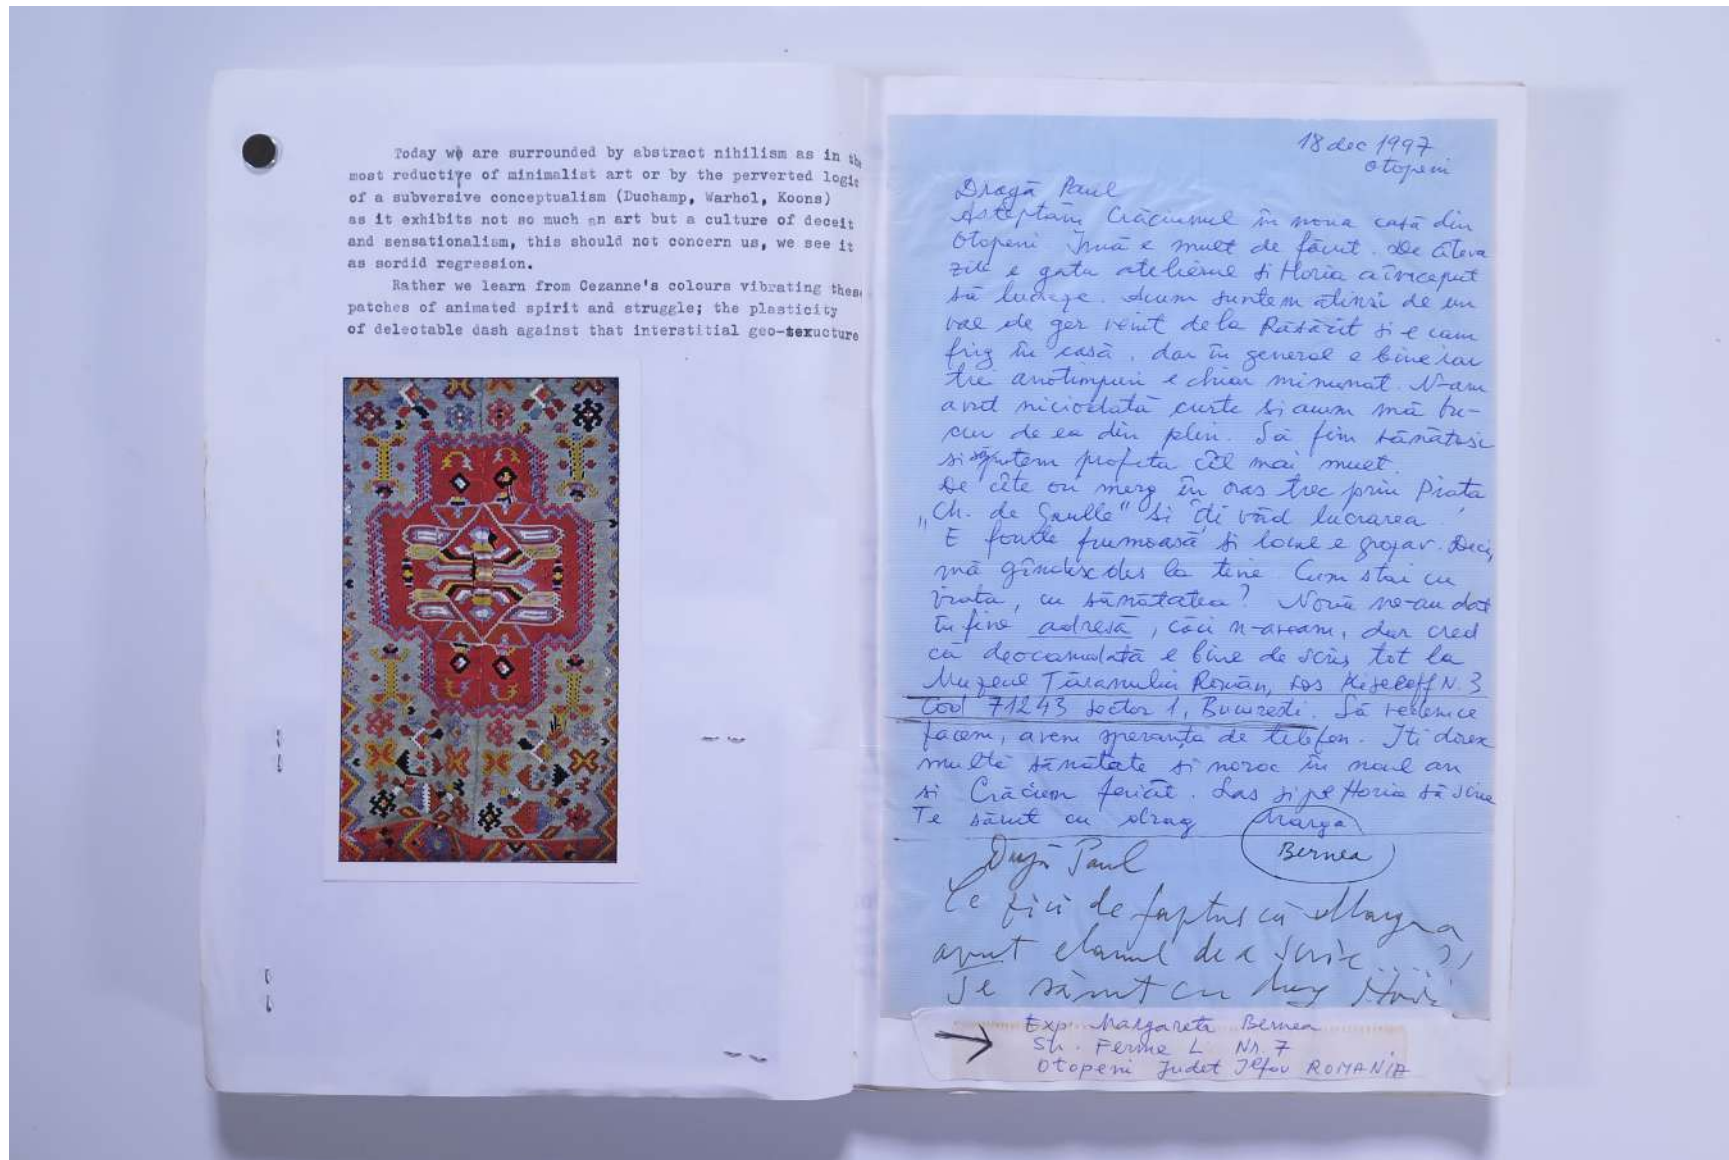 Today we are surrounded by abstract nihilism as in the
most reductive of minimalist art or by the perverted logic
of a subversive conceptualism (Duchamp, Warhol, Koons)
as it exhibits not so much an art but a culture of deceit
and sensationalism, this should not concern us, we see it
as sordid regression.
Rather we learn from Cezanne's colours vibrating these
patches of animated spirit and struggle; the plasticity
of delectable dash against that interstitial geo-texucture
18 dec 1997
Otopeni
Dragă Paul
Asteptăm Crăciunul în noua casă din
Otopeni Încă e mult de făcut. De câteva
zile e gata atelierul si Horia a început
să lucreze. Acum suntem atinsi de un
val de ger venit de la Răsărit si e cam
frig în casă, dar în general e bine iar
trei anotimpuri e chiar minunat. N-am
avut niciodată curte si acum mă bu-
cur de ea din plin. Să fim sănătosi
si să putem profita cât mai mult.
De câte ori merg în oras trec prin Piata
"Ch. de Gaulle" si îti văd lucrarea.
E foarte frumoasă si locul e grozav. Deci,
mă gândesc des la tine. Cum stai cu
viata, cu sănătatea? Nouă ne-au dat
în fine adresă, căci n-aveam, dar cred
că deocamdată e bine de scris tot la
Muzeul Tăranului Român, Sos Kiseleff N. 3
Cod 71243 sector 1, Bucuresti. Să vedem ce
facem, avem speranta de telefon. Iti doresc
multă sănătate si noroc în noul an
si Crăciun fericit. Las si pe Horia să scrie
Te sărut cu drag Marga
Bernea
Dragă Paul
Ce zici de faptul că Marga a
avut elanul de a scrie
Te sărut cu drag Horia
Exp. Margareta Bernea
Str. Ferme L. Nr. 7
Otopeni Judet Ilfov ROMANIA